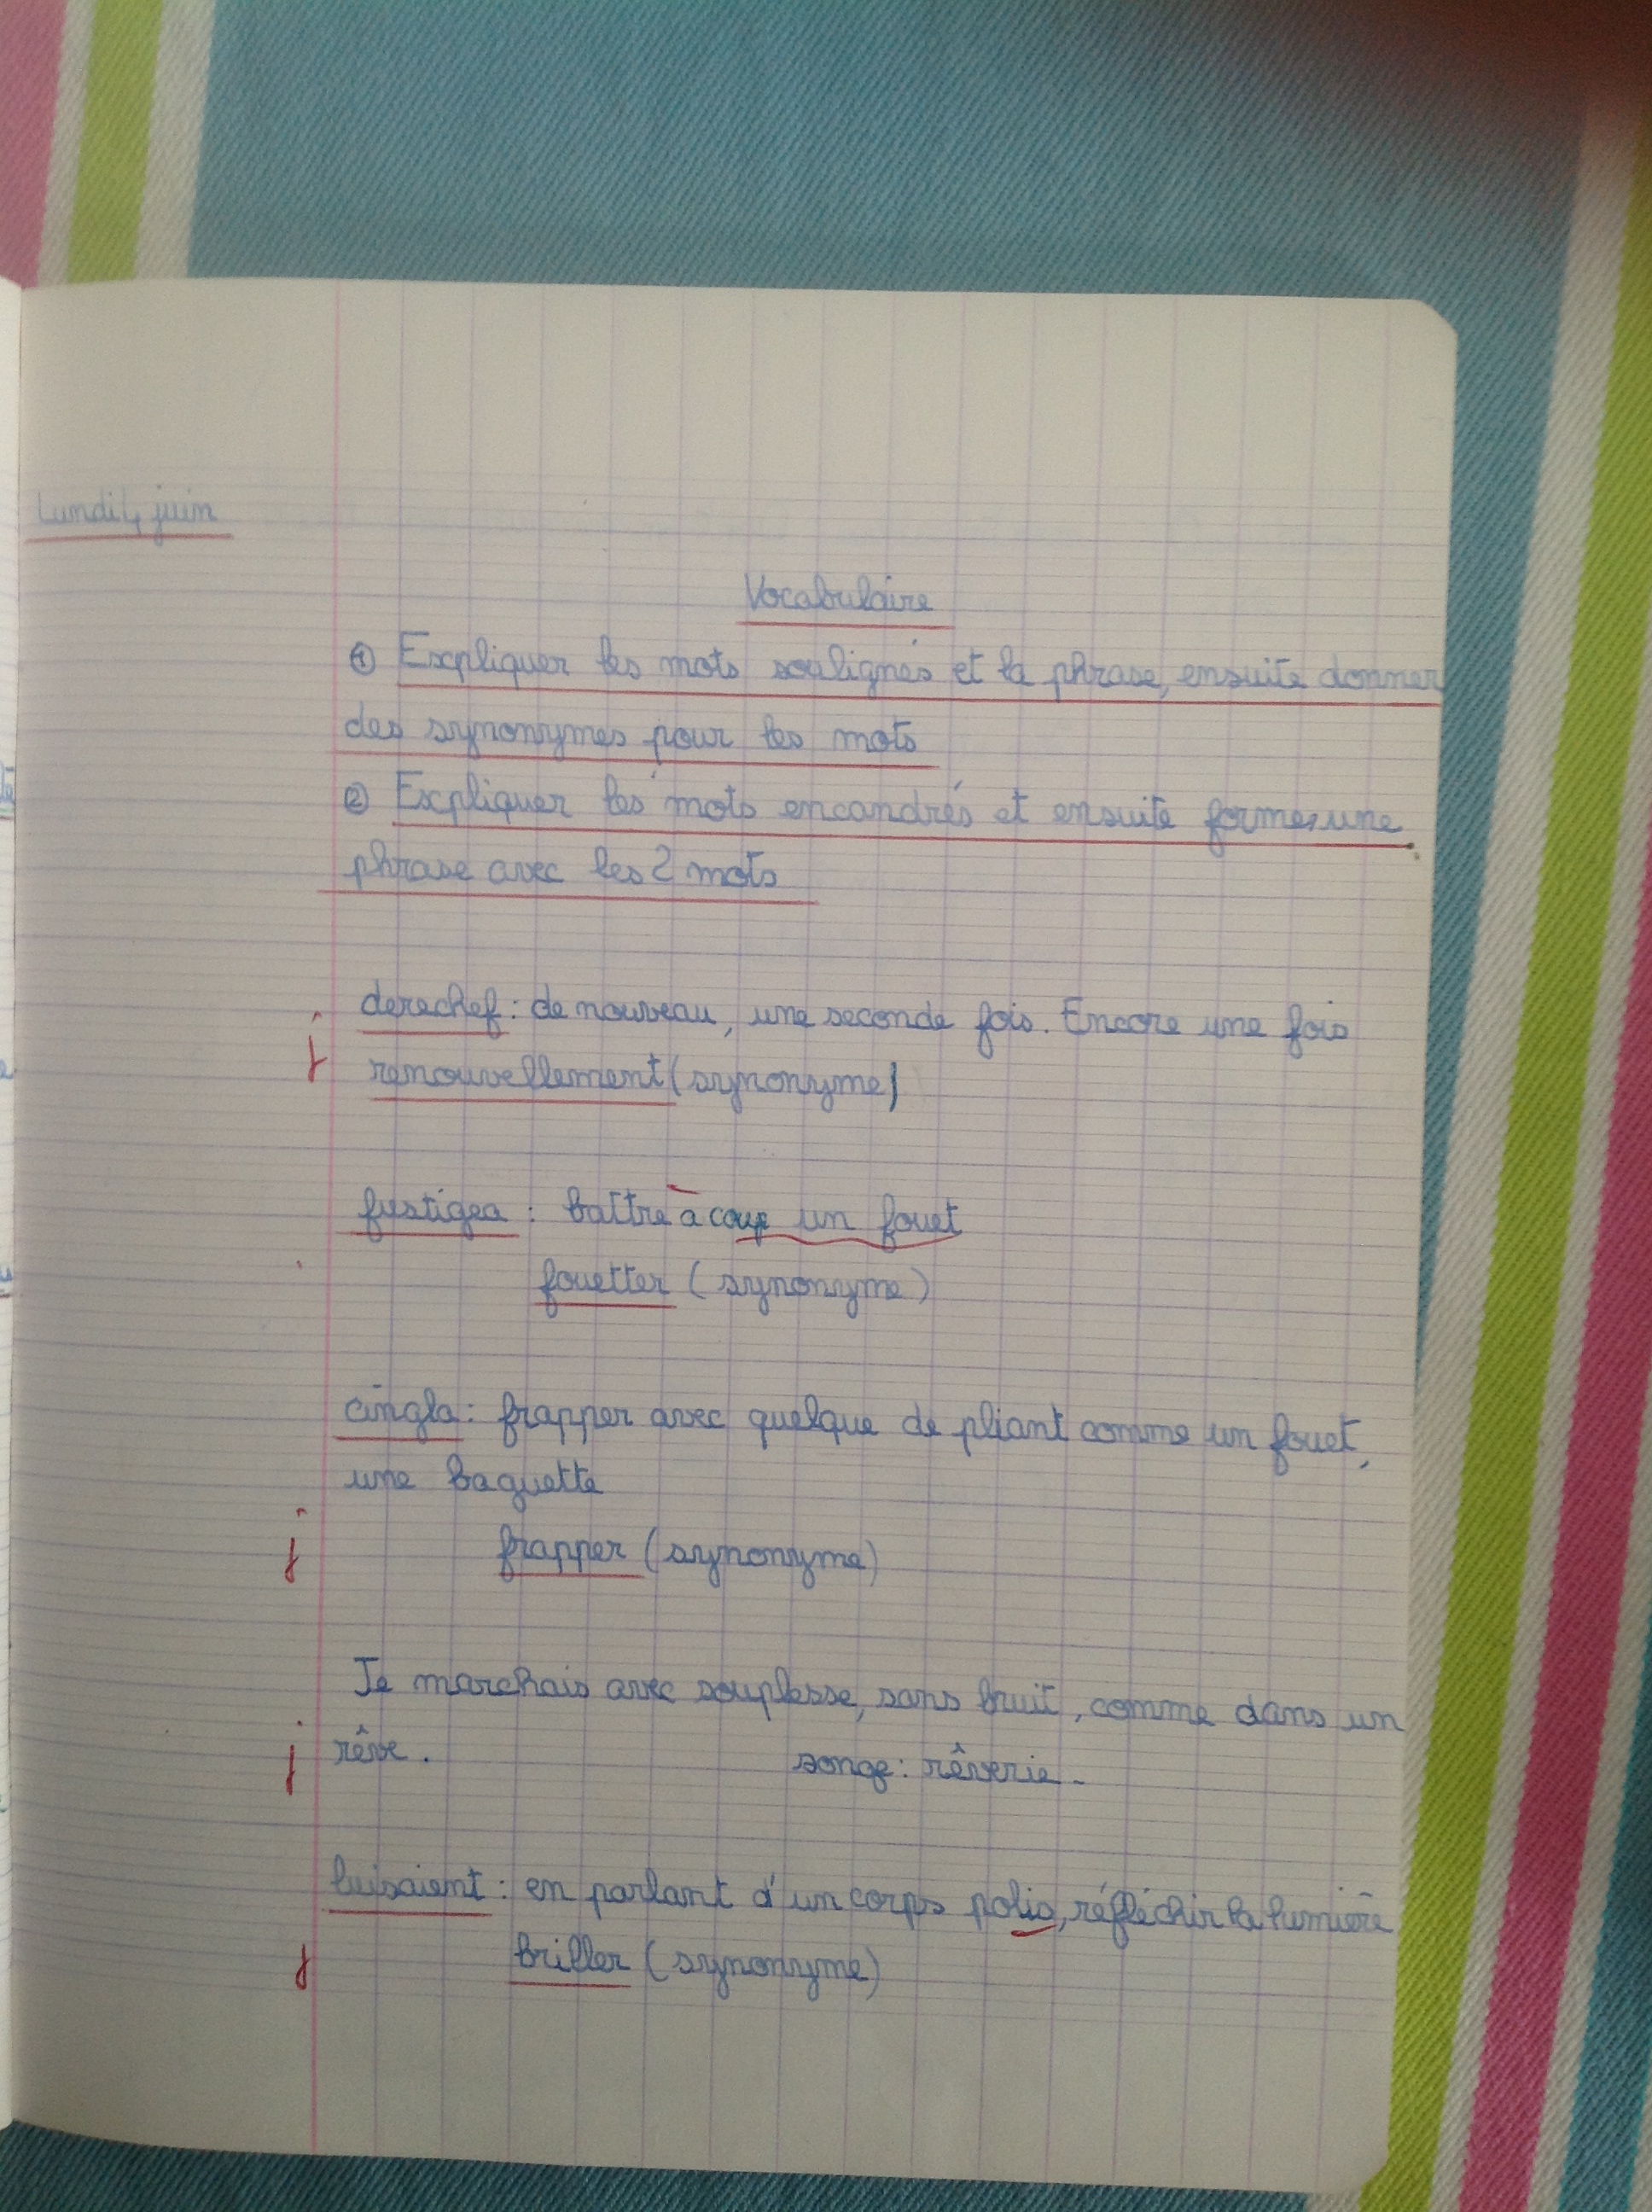 Lundi 4 juin
Vocabulaire
① Expliquer les mots soulignés et la phrase, ensuite donner
des synonymes pour les mots
② Expliquer les mots encandrés et ensuite former une
phrase avec les 2 mots
derechef : de nouveau, une seconde fois. Encore une fois
renouvellement (synonnyme)
fustigea : battre à coup un fouet
fouetter (synonnyme)
cingla : frapper avec quelque de pliant comme un fouet,
une baguette
frapper (synonnyme)
Je marchais avec souplesse, sans bruit, comme dans un
rêve. songe : rêverie.
luisaient : en parlant d'un corps polis, réfléchir la lumière
Briller (synonnyme)